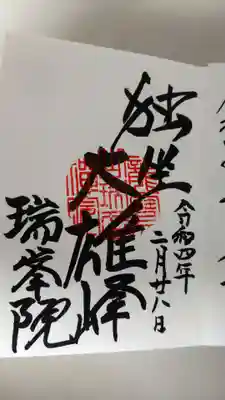 令和四年
二月廿八日
独坐大雄峰
瑞峯院